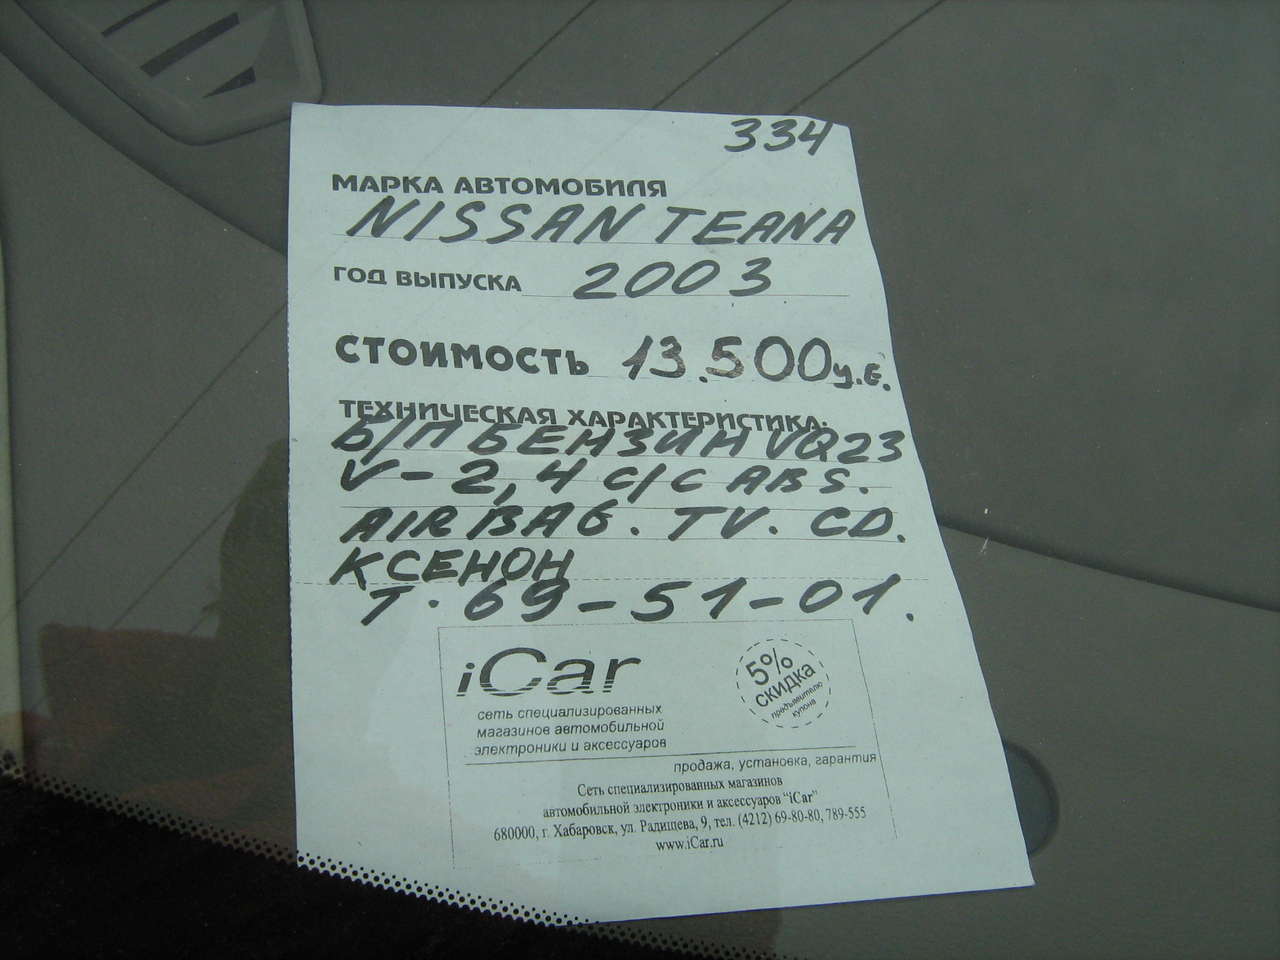 334
МАРКА АВТОМОБИЛЯ
NISSAN TEANA
ГОД ВЫПУСКА 2003
СТОИМОСТЬ 13.500 у.е.
ТЕХНИЧЕСКАЯ ХАРАКТЕРИСТИКА:
Б/П БЕНЗИН VQ23
V-2,4 С/С ABS.
AIRBAG. TV. CD.
КСЕНОН
Т. 69-51-01.
iCar
5%
СКИДКА
предъявителю
купона
сеть специализированных
магазинов автомобильной
электроники и аксессуаров
продажа, установка, гарантия
Сеть специализированных магазинов
автомобильной электроники и аксессуаров "iCar"
680000, г. Хабаровск, ул. Радищева, 9, тел. (4212) 69-80-80, 789-555
www.iCar.ru